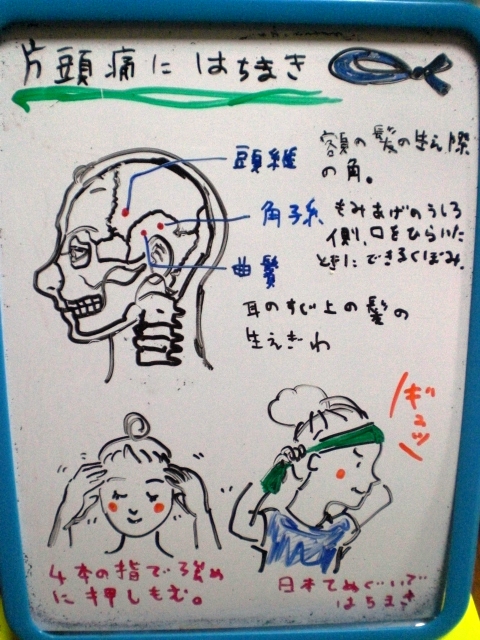 片頭痛に はちまき
頭維
額の髪の生え際
の角。
角孫
もみあげのうしろ
側、口をひらいた
ときにできるくぼみ。
曲鬢
耳のすじ上の髪の
生えぎわ
ギュッ
4本の指で強め
に押しもむ。
日本てぬぐいで
はちまき